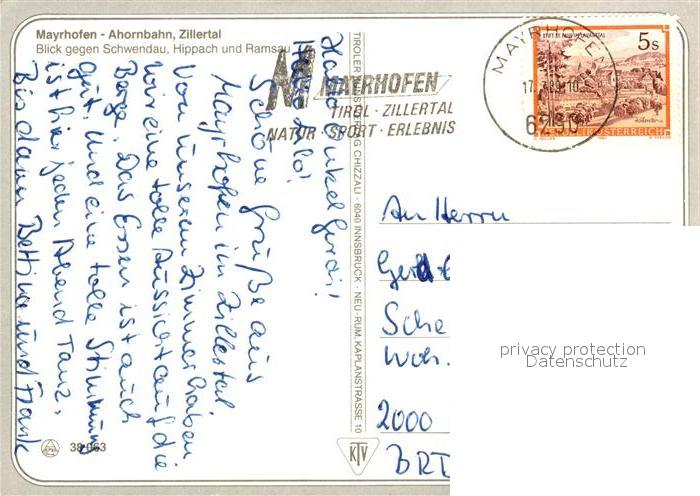 Mayrhofen - Ahornbahn, Zillertal
Blick gegen Schwendau, Hippach und Ramsau
Hallo Onkel Gerdi!
Hallo
Schöne Grüße aus
Mayrhofen im Zillertal
Von unserem Zimmer haben
wir eine tolle Aussicht auf die
Berge. Das Essen ist auch
gut. Und eine tolle Stimmung
ist hier jeden Abend Tanz.
Bis dann Bettina und Frank
38 063
TIROLER CHIZZALI · 6040 INNSBRUCK · NEU-RUM, KAPLANSTRASSE 10
KTV
MAYRHOFEN
TIROL · ZILLERTAL
NATUR · SPORT · ERLEBNIS
MAYRHOFEN
6290
5s
REPUBLIK ÖSTERREICH
An Herrn
Sche
Woh.
2000
BRD
privacy protection
Datenschutz